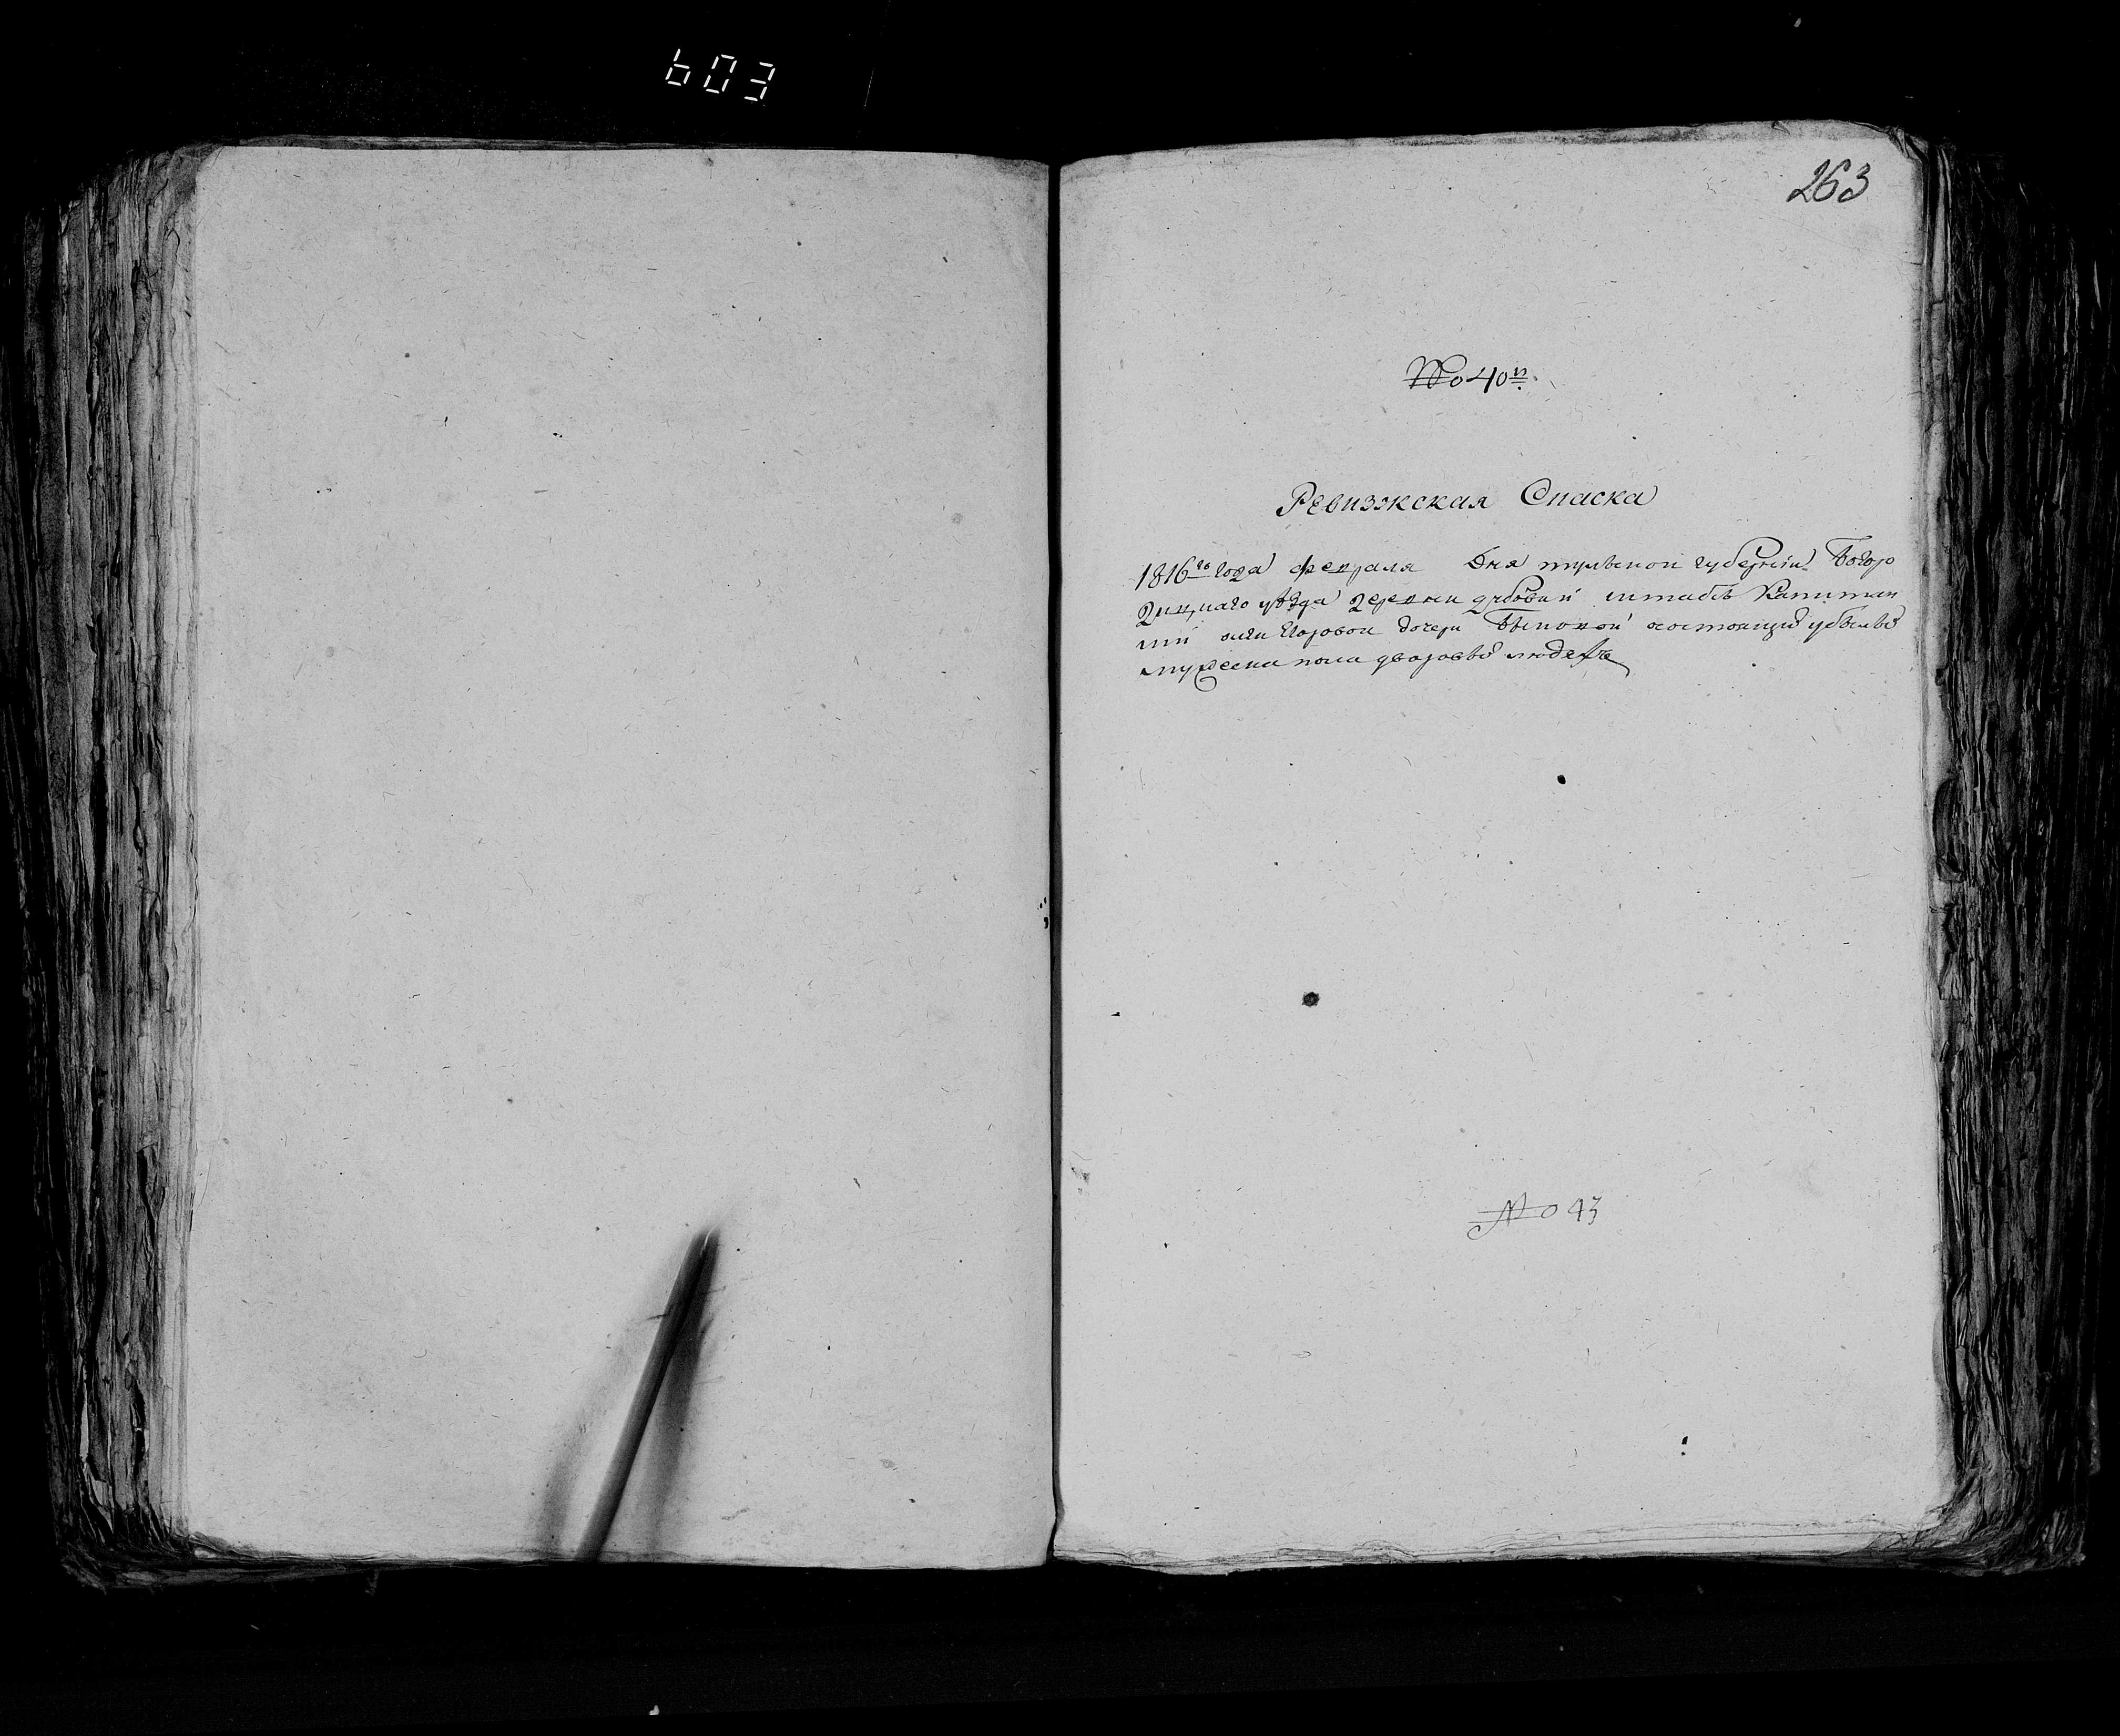 603
263
№ 40й
Ревизжская Спаска
1816го года февраля Дня тульской губернии Богор
диц,каго уѣзда деревни дубовки штабсъ Капитан
ши Егоровой дочери Быковой состоящихъ
мужеска пола дворовыхъ людехъ
№ 43